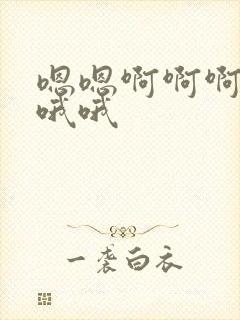 嗯嗯啊啊啊
哦哦
一袭白衣